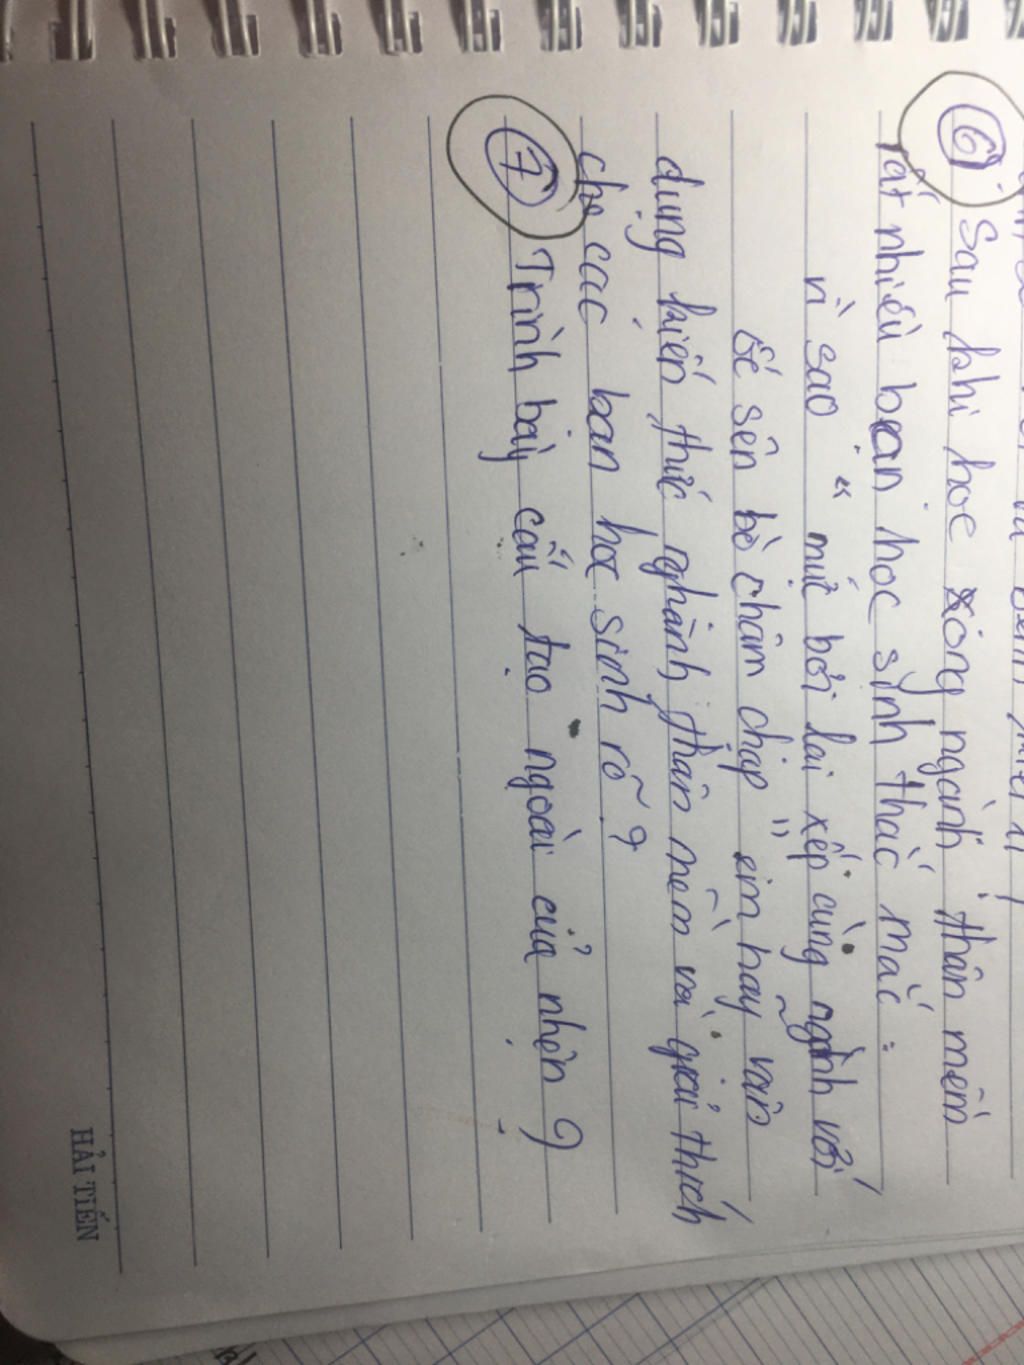 ⑥ Sau khi học xong ngành thân mềm
rất nhiều bạn học sinh thắc mắc :
vì sao " mực bơi lại xếp cùng ngành với
ốc sên bò chậm chạp " em hãy vận
dụng kiến thức nghành thân mềm và giải thích
cho các bạn học sinh rõ ?
⑦ Trình bày cấu tạo ngoài của nhện ?
HẢI TIẾN